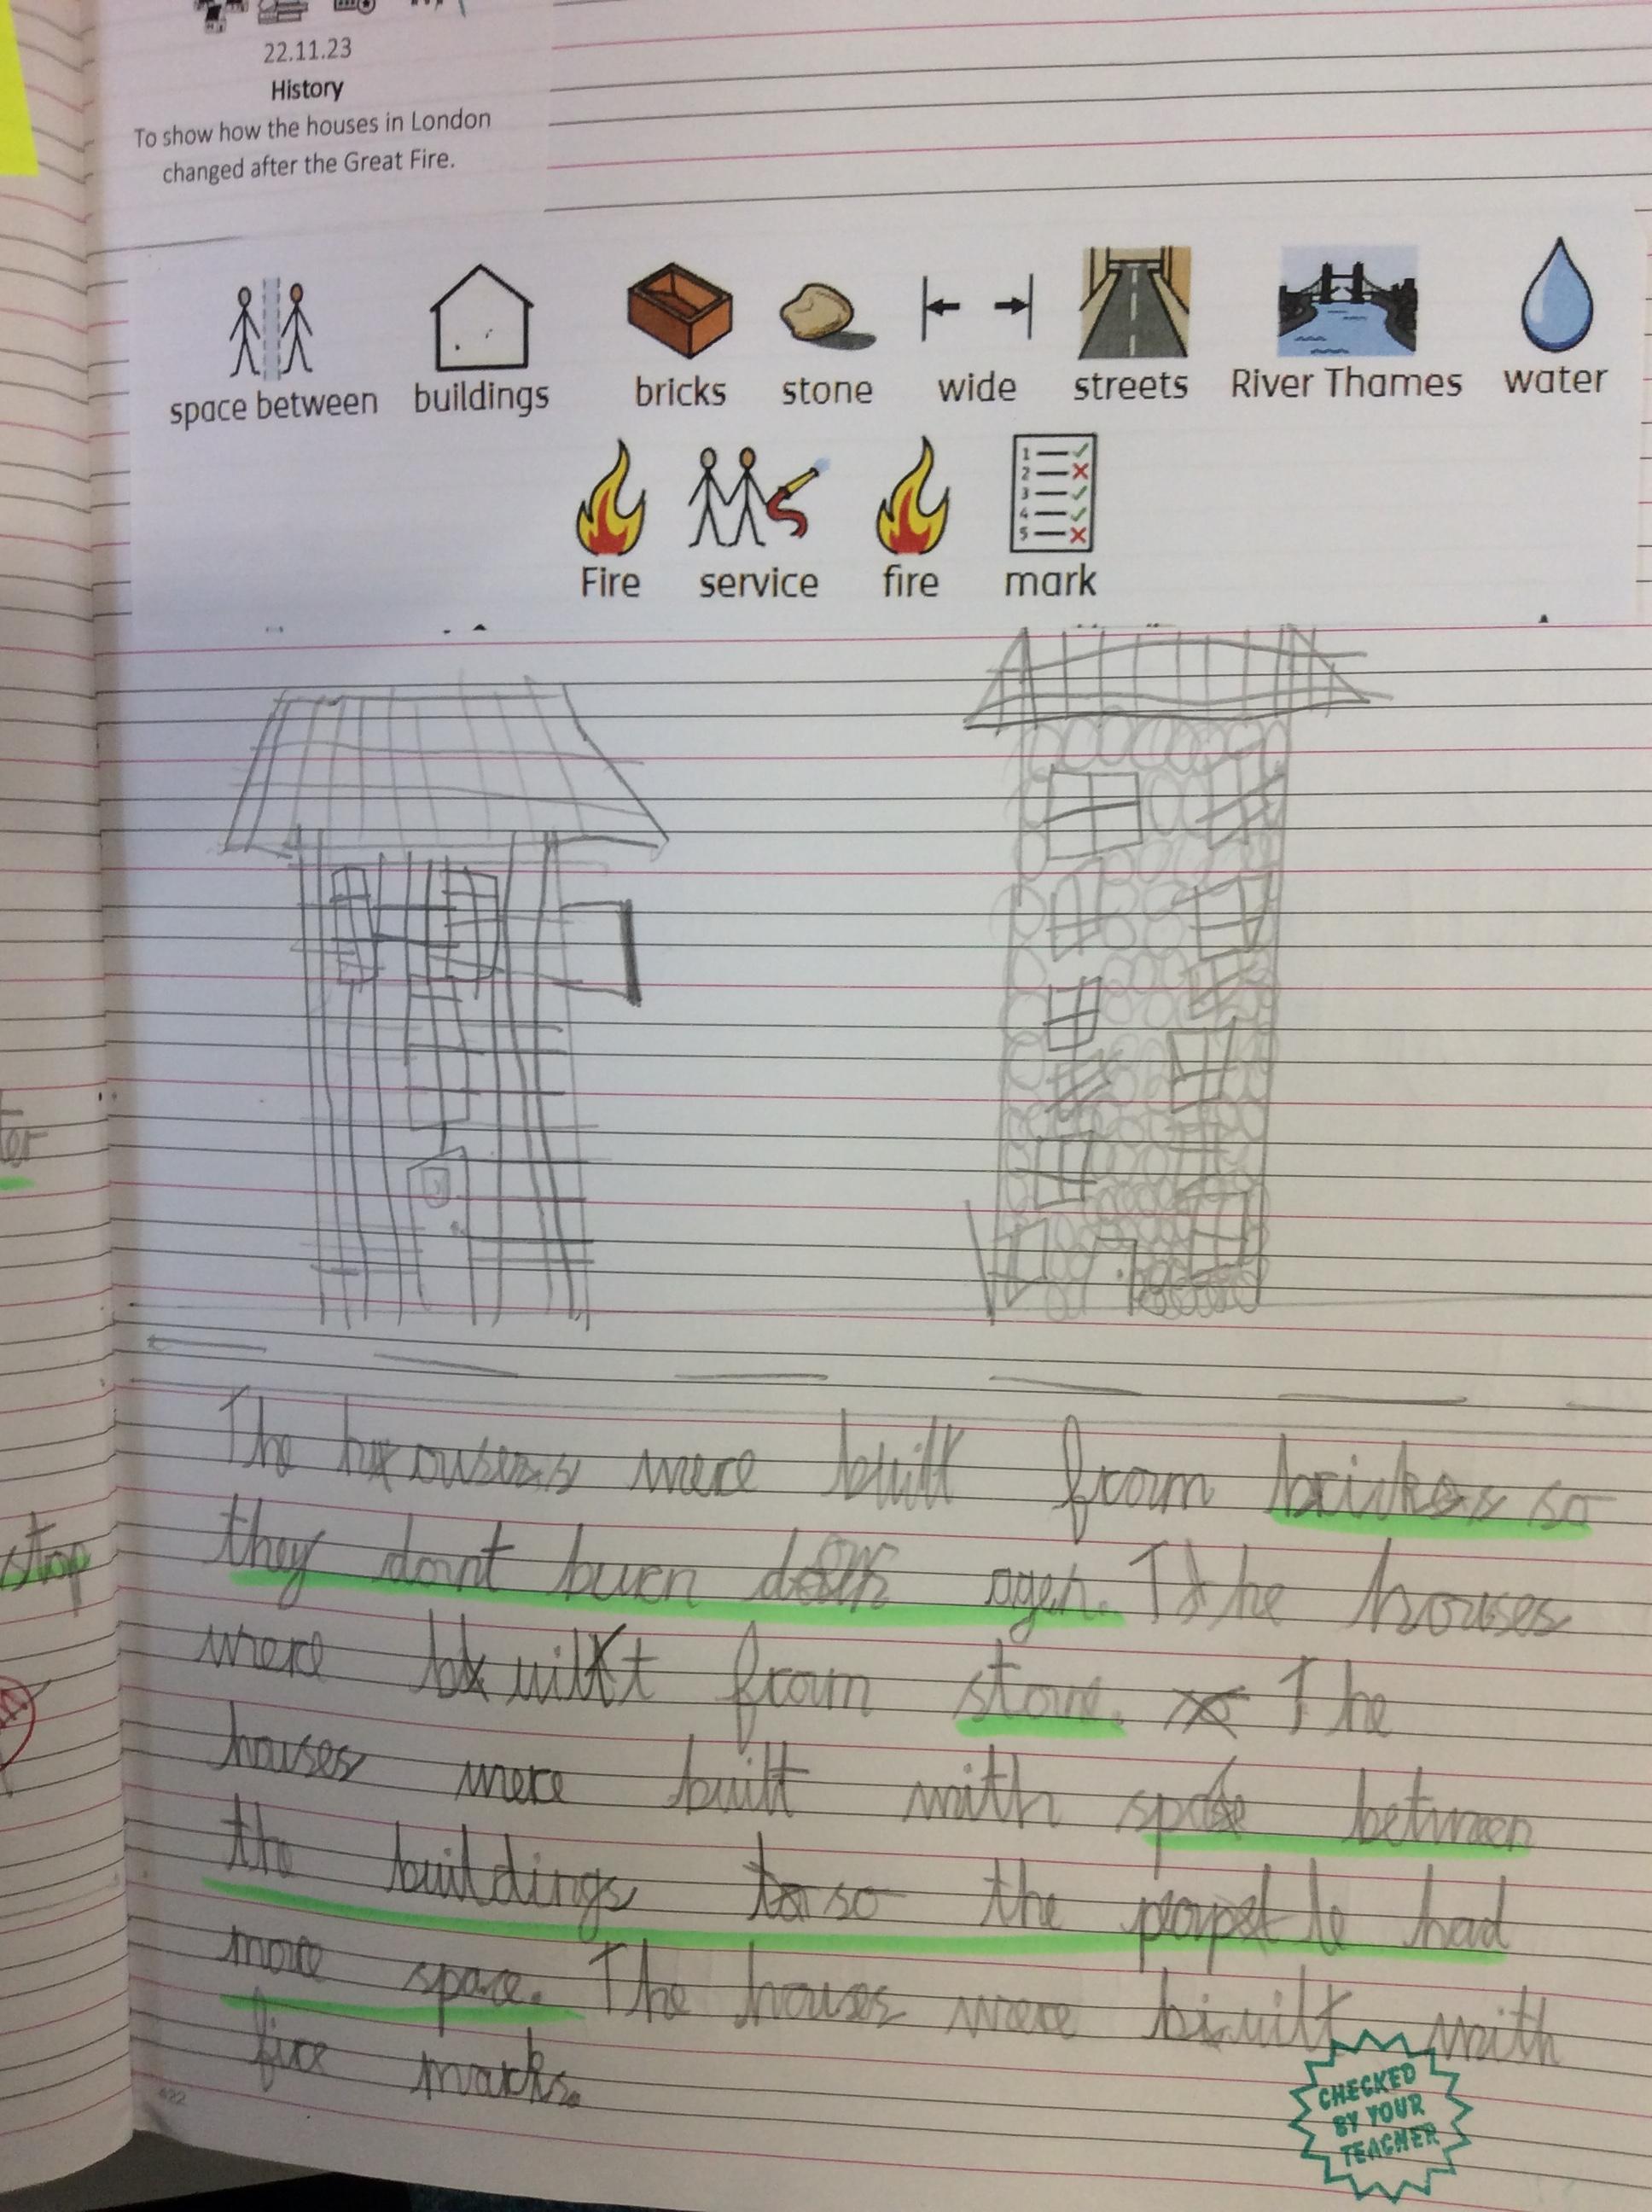 22.11.23
History
To show how the houses in London
changed after the Great Fire.
space between buildings bricks stone wide streets River Thames water
Fire service fire mark
ter
stop
The houses were built from brickes so
they dont burn down agen. The houses
were built from stone. The
houses were built with space between
the buildings so the people had
more space. The houses were built with
fire marks.
CHECKED
BY YOUR
TEACHER